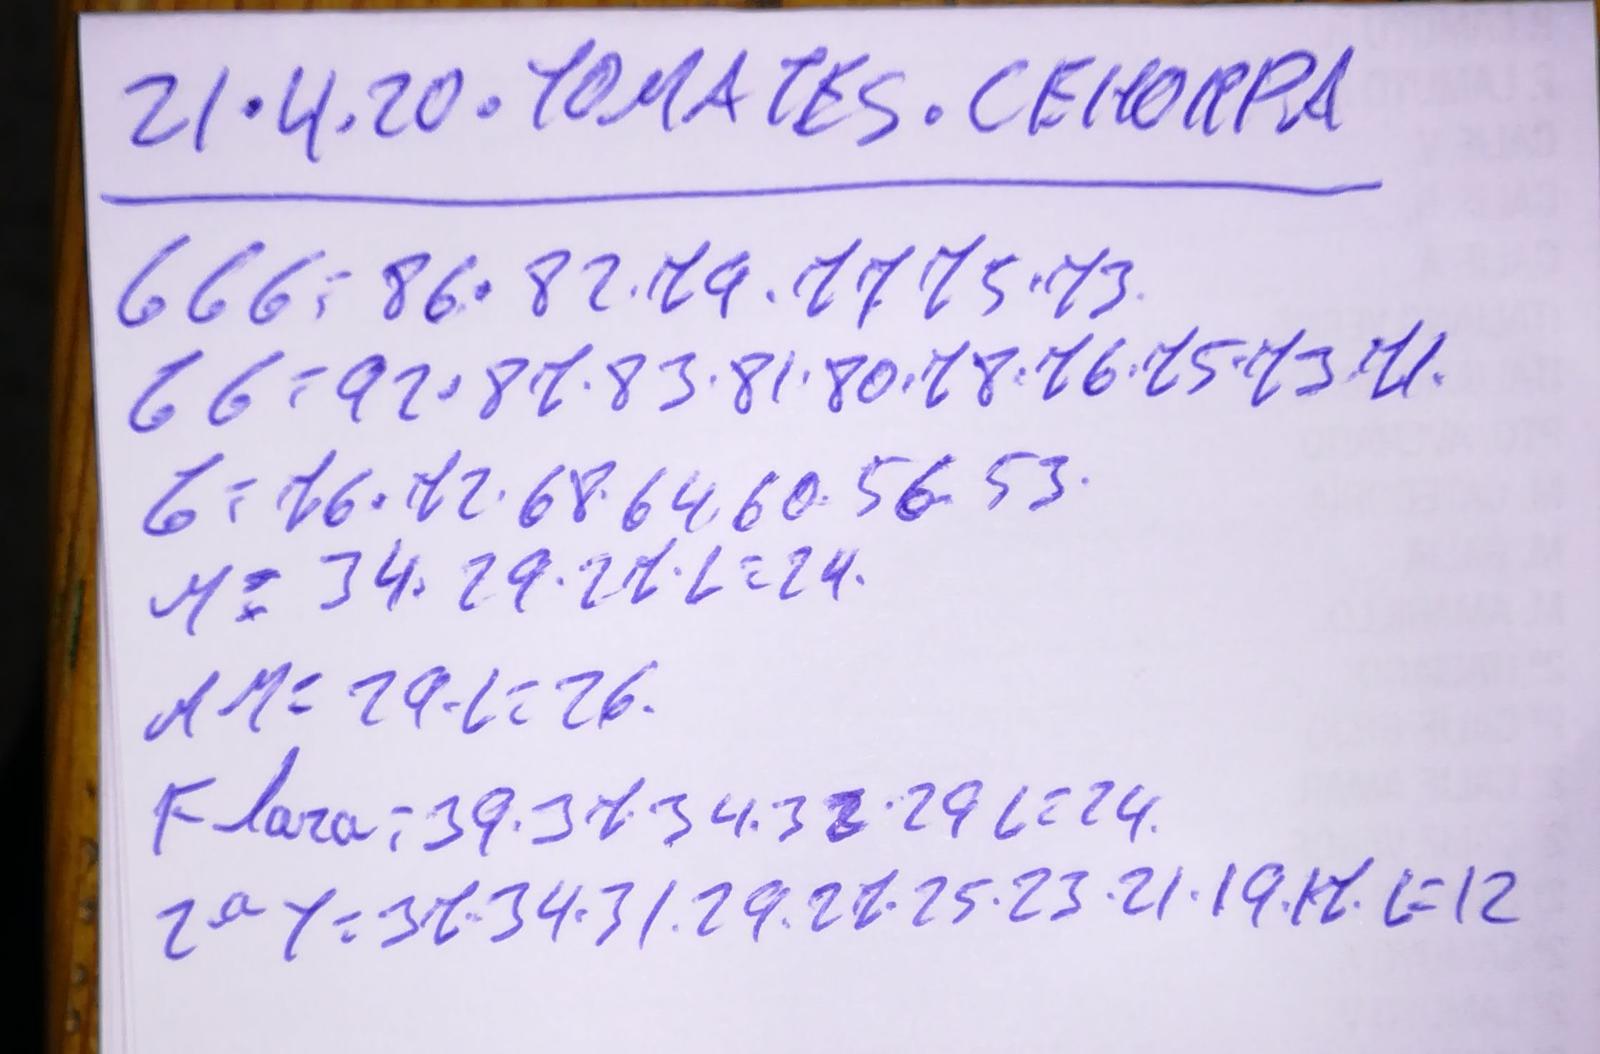 21.4.20.TOMATES.CEHORPA
GGG=86.82.79.77 75.73.
GG=92.87.83.81.80.78.76.75.73.71.
G=76.72.68.64.60.56.53.
M=34.29.27.L=24.
MM=29.L=26.
Flara=39.37.34.32.29 L=24.
2ª Y=37.34.31.29.27.25.23.21.19.17.L=12